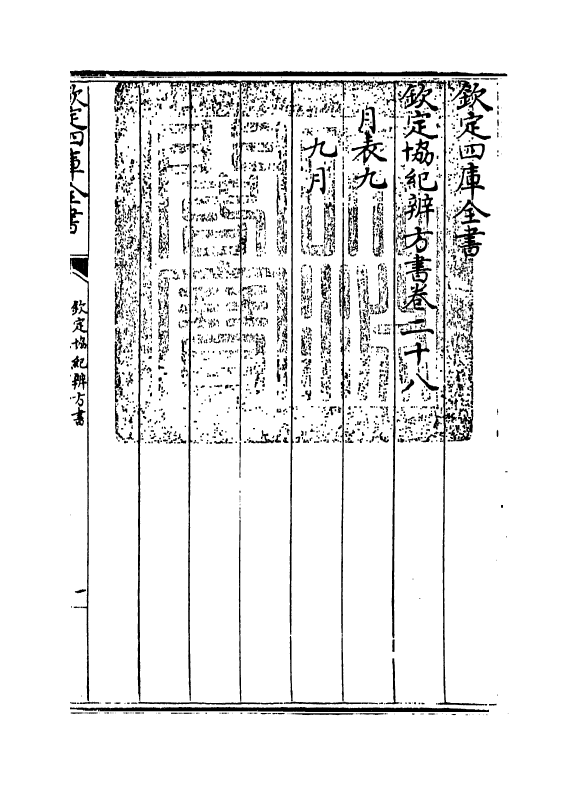 欽定四庫全書
欽定協紀辨方書卷二十八
月表九
九月
欽定四庫全書
欽定協紀辨方書
一